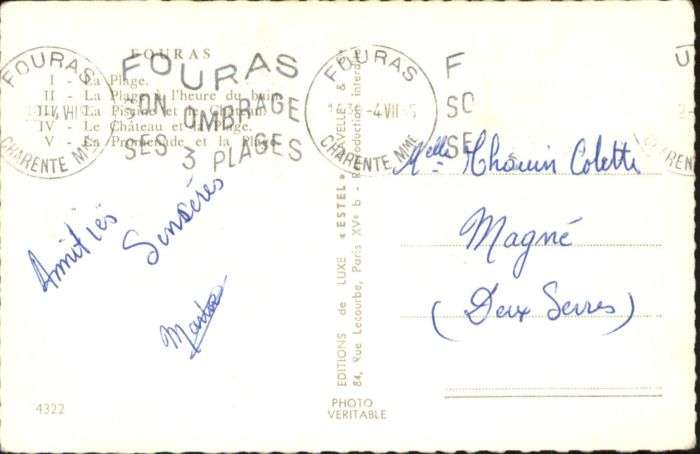 FOURAS
I - La Plage.
II - La Plage à l'heure du bain.
III - La Piscine et le Château.
IV - Le Château et la Plage.
V - La Promenade et la Plage.
FOURAS
CHARENTE MME
FOURAS
SON OMBRAGE
SES 3 PLAGES
FOURAS
-4 VII
CHARENTE MME
F
SO
SE
Amitiés
Sensères
4322
EDITIONS de LUXE "ESTEL"
84, Rue Lecourbe, Paris XVe b - Reproduction interdite
PHOTO
VERITABLE
Melle Thouin Colette
Magné
(Deux Sevres)